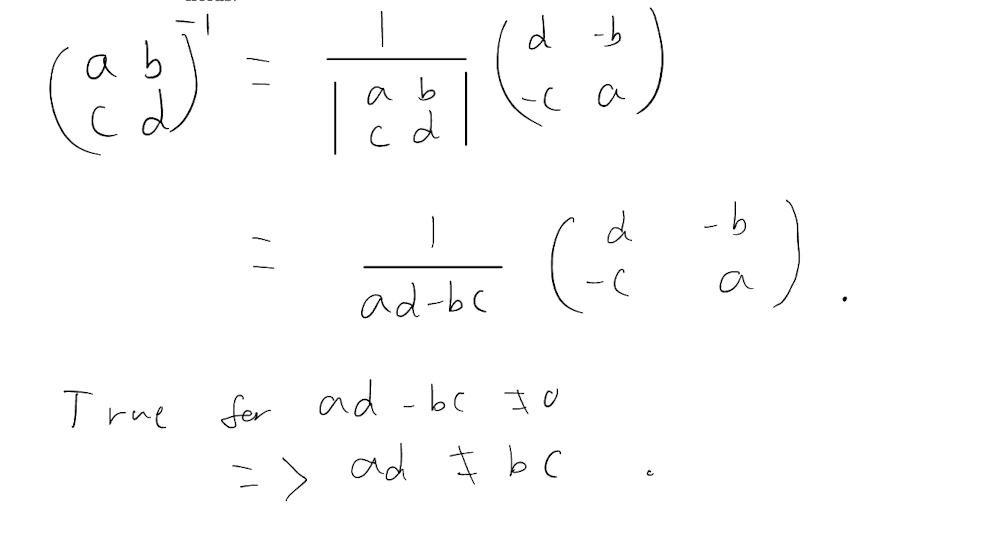 (a b
c d)^-1 = 1 / |a b
c d| (d -b
-c a)
= 1 / ad-bc (d -b
-c a).
True for ad - bc ≠ 0
=> ad ≠ bc .